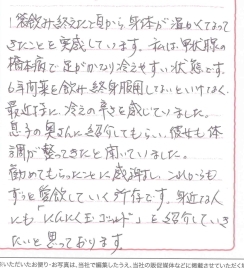 1袋飲み終えた頃から、身体が温かくなって
きたことを実感しています。私は甲状腺の
橋本病で足がかなり冷えやすい状態です。
6年間薬を飲み終身服用しないといけなく
最近特に、冷えの辛さを感じていました。
息子の奥さんに紹介してもらい、彼女も体
調が整ってきたと聞いていました。
勧めてもらったことに感謝し、これからも
ずっと愛飲していく所存です。身近な人
にも「にんにく玉ゴールド」を紹介していき
たいと思っております。
いただいたお便り・お写真は、当社で編集したうえ、当社の販促媒体などに掲載させていただく